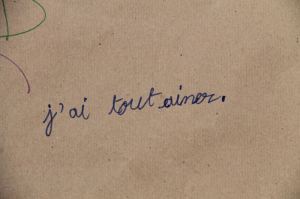 j'ai tout aimer.